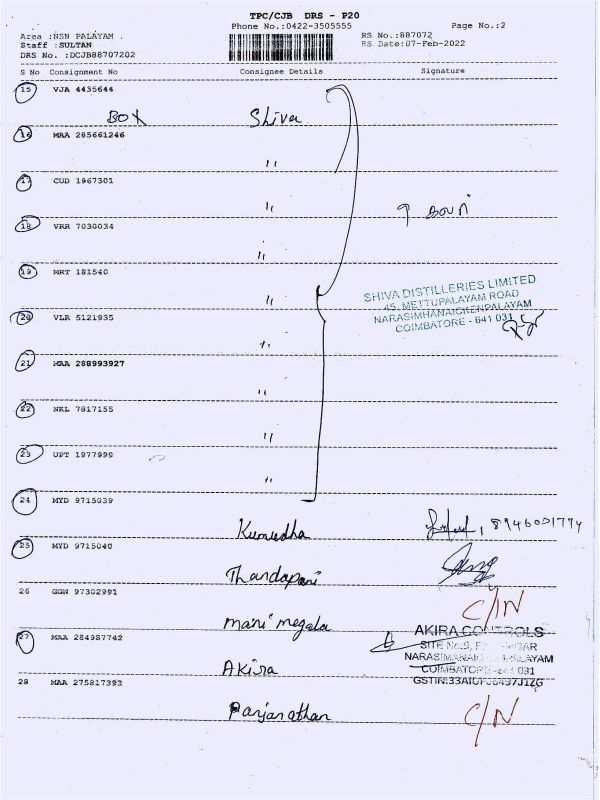 TPC/CJB DRS - P20
Phone No.:0422-3505555
Page No.:2
Area :NSN PALAYAM .
Staff :SULTAN
DRS No. :DCJB88707202
RS No.:887072
RS Date:07-Feb-2022
S No Consignment No Consignee Details Signature
15 VJA 4435646
BOX Shiva
16 MAA 285661246
"
17 CUD 1967301
"
18 VRR 7030034
"
19 MRT 181540
"
20 VLR 5121935
"
21 MAA 288993927
"
22 NKL 7817155
"
23 UPT 1977999
"
SHIVA DISTILLERIES LIMITED
45, METTUPALAYAM ROAD
NARASIMHANAICKENPALAYAM
COIMBATORE - 641 031
24 MYD 9715039
Kumudha
25 MYD 9715040
Thandapani
26 GGN 97302991
Mani megala C/N
27 MAA 284987742
Akira
AKIRA CONTROLS
SITE No.9,
NARASIMANAICKENPALAYAM
COIMBATORE-641 031
28 MAA 275817393
Panjanathan C/N